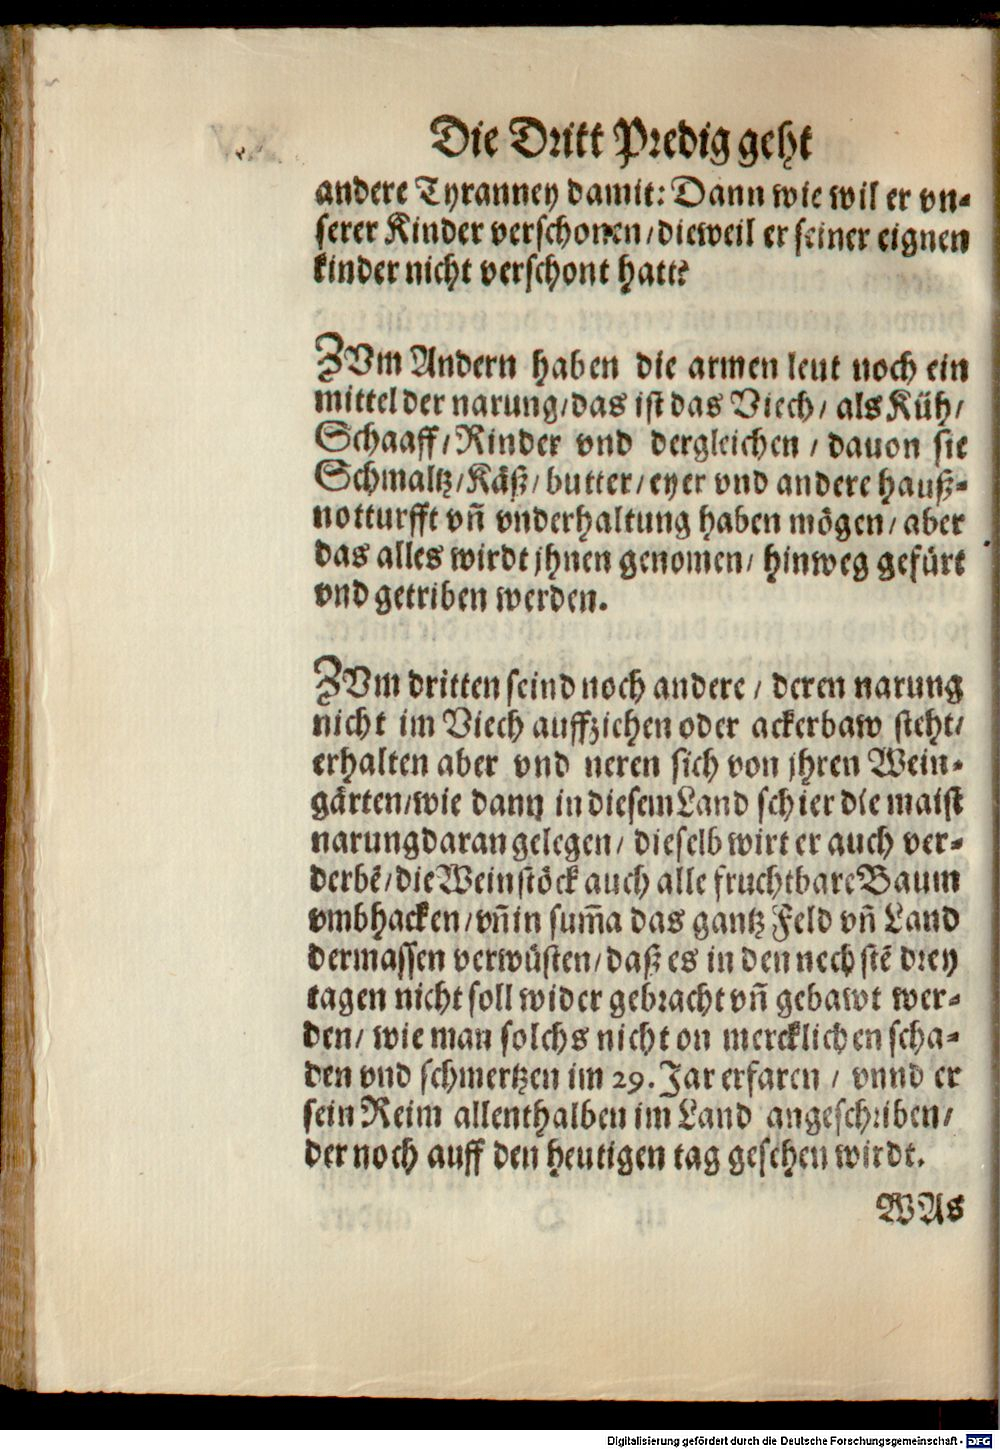 Die Dritt Predig geht
andere Tyranney damit: Dann wie wil er vn-
serer Kinder verschonen/ dieweil er seiner eignen
kinder nicht verschont hatt?
ZVm Andern haben die armen leut noch ein
mittel der narung/ das ist das Viech/ als Küh/
Schaaff/ Rinder vnd dergleichen/ dauon sie
Schmaltz/ Käß/ butter/ eyer vnd andere hauß-
notturfft vn̄ vnderhaltung haben mögen/ aber
das alles wirdt jhnen genomen/ hinweg gefürt
vnd getriben werden.
ZVm dritten seind noch andere/ deren narung
nicht im Viech auffziehen oder ackerbaw steht/
erhalten aber vnd neren sich von jhren Wein-
gärten/ wie dann in diesem Land schier die maist
narung daran gelegen/ dieselb wirt er auch ver-
derbē/ die Weinstöck auch alle fruchtbare Baum
vmbhacken/ vn̄ in sum̄a das gantz Feld vn̄ Land
dermassen verwüsten/ daß es in den nechstē drey
tagen nicht soll wider gebracht vn̄ gebawt wer-
den/ wie man solchs nicht on mercklichen scha-
den vnd schmertzen im 29. Jar erfaren/ vnnd er
sein Reim allenthalben im Land angeschriben/
der noch auff den heutigen tag gesehen wirdt.
WAs
Digitalisierung gefördert durch die Deutsche Forschungsgemeinschaft - DFG